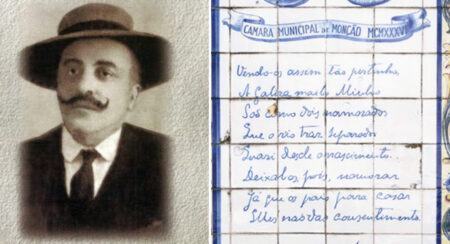 CAMARA MUNICIPAL DE MONÇÃO MCMXXXVI
Vendo-os assim tão pertinho,
A Galiza mailo Minho
São como dois namorados
Que o rio traz separados
Quasi desde o nascimento.
Deixal-os, pois, namorar
Já que os pais para casar
Lhes não dão consentimento.